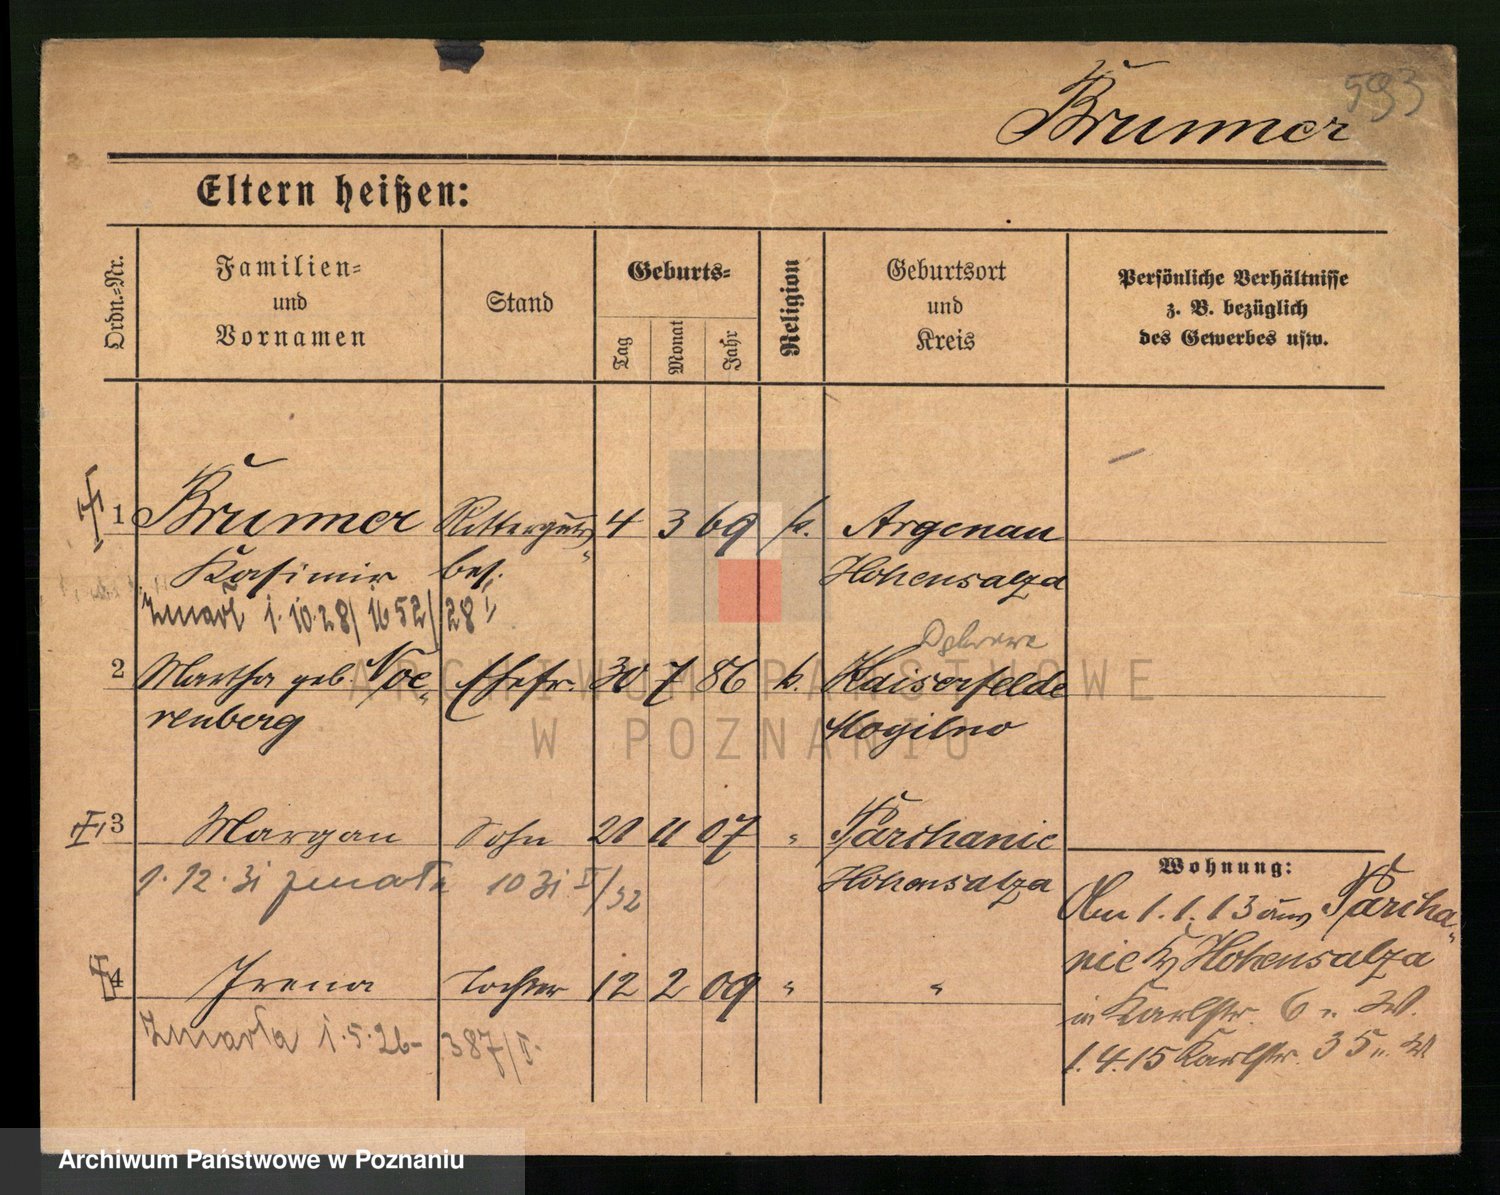 593
Brunner
Eltern heißen:
Ordn.-Nr.
Familien-
und
Vornamen
Stand
Geburts-
Tag
Monat
Jahr
Religion
Geburtsort
und
Kreis
Persönliche Verhältnisse
z. B. bezüglich
des Gewerbes usw.
1 Brunner Ritterguts 4 3 69 k. Argenau
Kasimir bes. Hohensalza
Zmarł 1.10.28/1652/28 I
Dąbrowa
2 Martha geb. Noe- Ehefr. 30 7 86 k. Kaiserfelde
renberg Mogilno
3 Margan Sohn 21 11 07 " Parchanie
9.12.31 10 31 I/32 Hohensalza
4 Irena Tochter 12 2 09 " "
Zmarła 1.5.26- 387/I.
Wohnung:
Am 1.1.13 aus Parcha-
nie Kr Hohensalza
in Karlstr. 6 u. W.
1.4.15 Karlstr. 35 u. W
ARCHIWUM PAŃSTWOWE
W POZNANIU
Archiwum Państwowe w Poznaniu